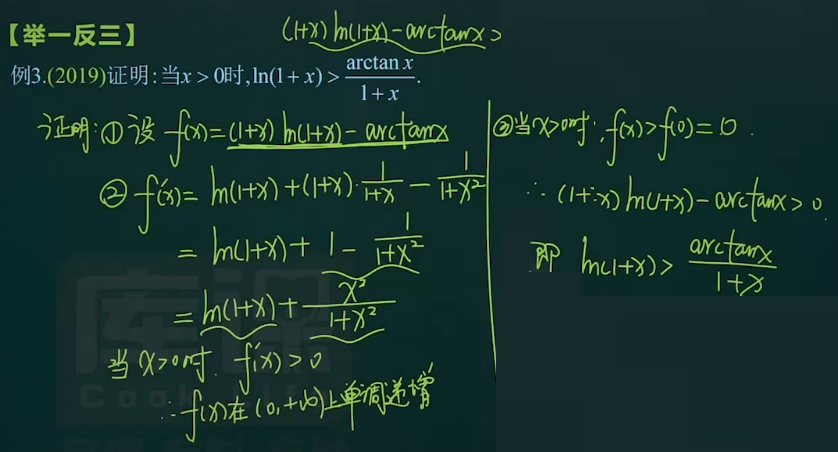 (1+x)ln(1+x)-arctanx>
【举一反三】
例3.(2019)证明:当x>0时,ln(1+x)>arctan x/(1+x).
证明:①设 f(x)=(1+x)ln(1+x)-arctanx
②f'(x)=ln(1+x)+(1+x)·1/(1+x)-1/(1+x²)
=ln(1+x)+1-1/(1+x²)
=ln(1+x)+x²/(1+x²)
当x>0时, f'(x)>0
∴f(x)在(0,+∞)上单调递增
③当x>0时, f(x)>f(0)=0.
∴(1+x)ln(1+x)-arctanx>0.
即 ln(1+x)>arctanx/(1+x)
库课